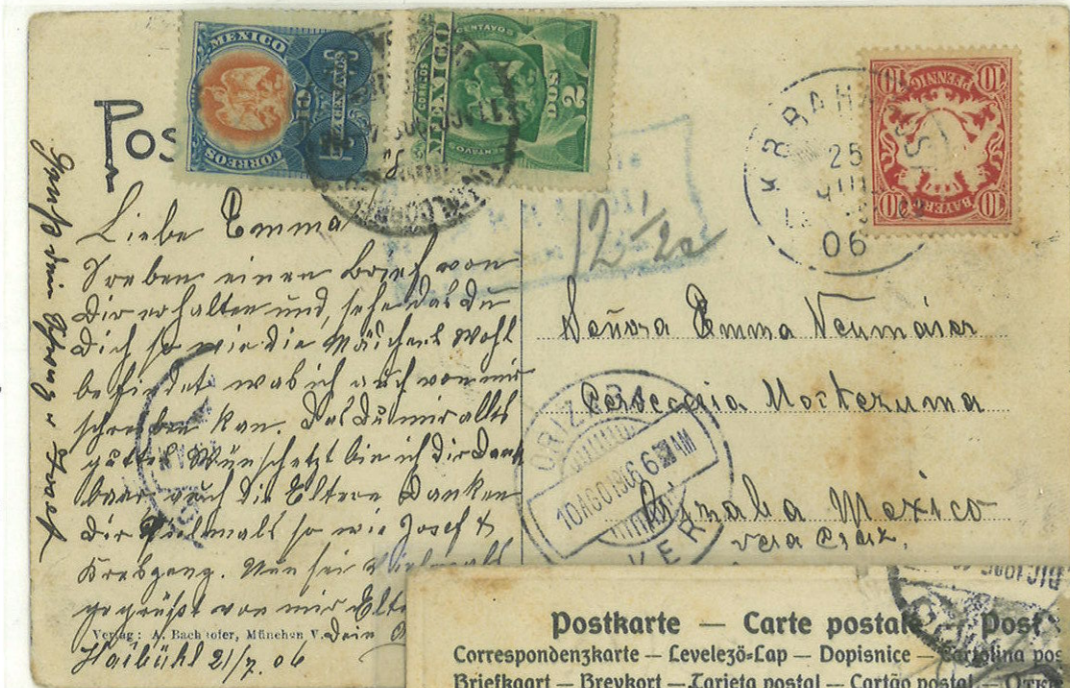 MEXICO
CORREOS
DIEZ CENTAVOS
10
CORREOS
MEXICO
CENTAVOS
DOS
2
CENTAVOS
10
PFENNIG
10
BAYERN
10
10
25
06
Pos
12 1/2 c
Liebe Emma
Soeben einen Brief von
Dir erhalten und, sehe das Du
Dich so wie die Mädchens Wohl
befindet was ich auch von mir
schreiben kan. Das Du mir alles
gutes Wünschetzt bin ich dir Dank
baar auch die Eltern Danken
Dir Vielmals so wie Josef &
Krebsgang. Nun sei Vielmals
gegrüßt von mir Elte
dein
Haibühl 21/7. 06
Verlag: A. Bachhofer, München V.
Señora Emma Neumaier
Cerveceria Moctezuma
Orizaba Mexico
Vera Cruz.
ORIZABA
10 AGO 1906 6 AM
VER
Postkarte — Carte postale — Post
Correspondenzkarte — Levelező-Lap — Dopisnice — Cartolina pos
Briefkaart — Brevkort — Tarjeta postal — Cartão postal —